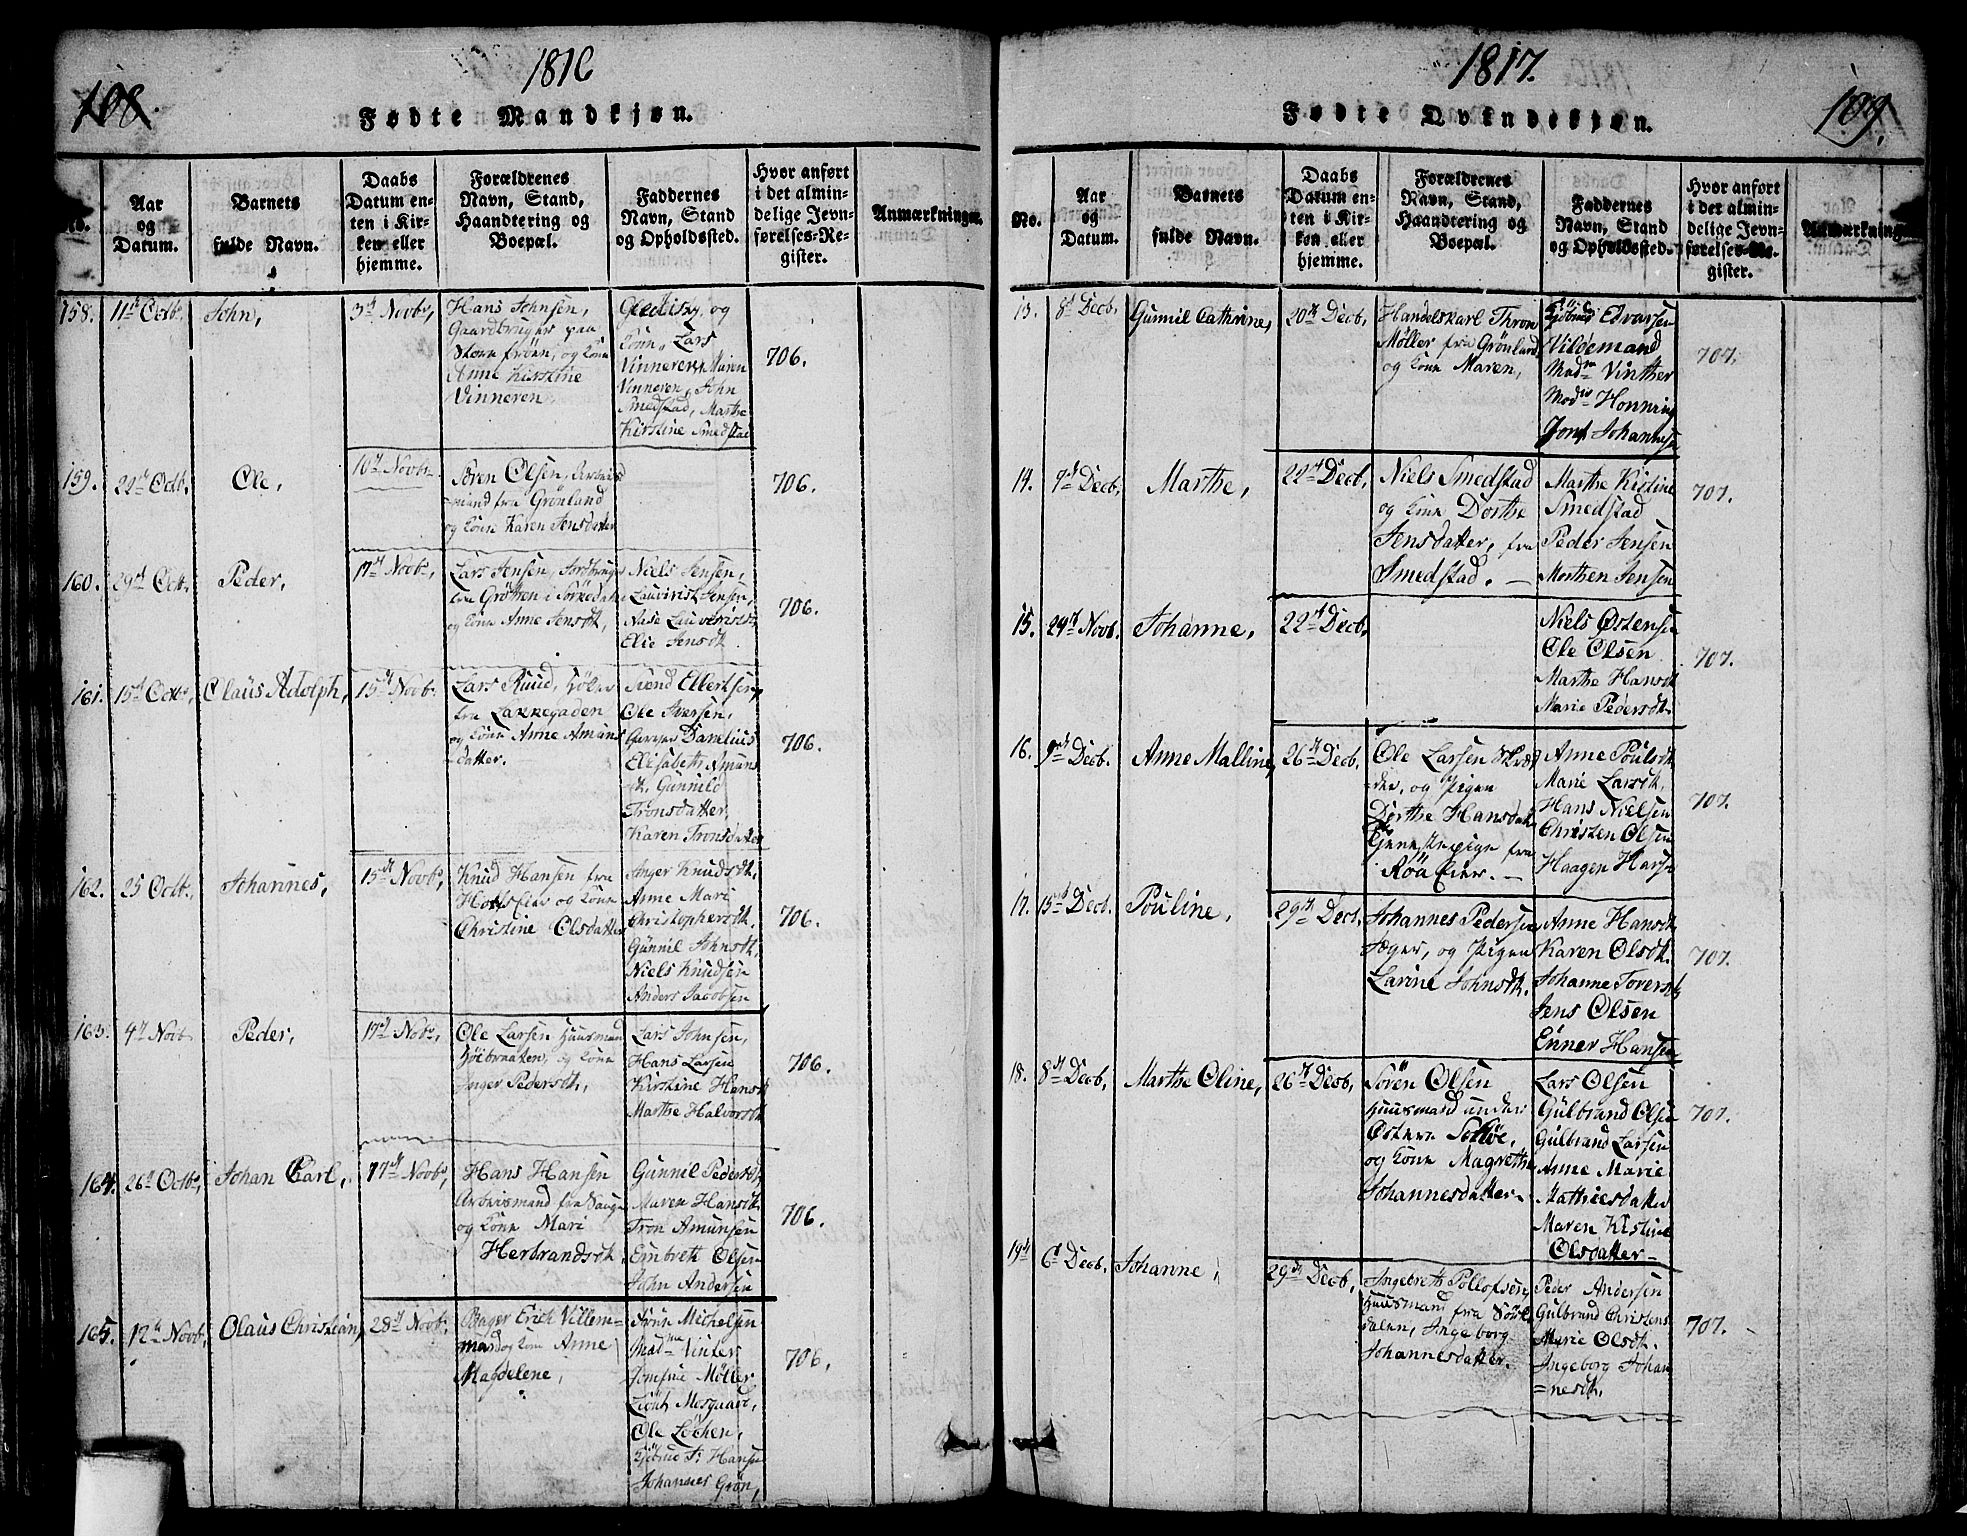 108.
1816
Fødte Mandkjøn.
No.
Aar
og
Datum.
Barnets
fulde Navn.
Daabs
Datum en-
ten i Kir-
ken eller
hjemme.
Forældrenes
Navn, Stand,
Haandtering og
Boepæl.
Faddernes
Navn, Stand
og Opholdssted.
Hvor anført
i det almin-
delige Jevn-
førelses-Re-
gister.
Anmærkninger.
158.
11te Octbr.
John,
3d Novbr,
Hans Johnsen,
Gaardbruger paa
Store Frøen, og Kone
Anne Kirstine
Vinneren
og
Kone, Lars
Vinneren, Maren
Vinneren, John
Smedstad, Marthe
Kirstine Smedstad
706.
159.
22d Octb.
Ole,
10d Novbr
Sören Olsen, Arbeids
=mand fra Grønland
og Kone Karen Jensdatter
706.
160.
29d Octb.
Peder,
17d Novbr,
Lars Jensen,
fra Grötten i Sörkedalen
og Kone Anne Jensdt,
Niels Jensen,
Lauvirist Jensen,
Elie Jensdt
706.
161.
15d Octbr,
Claus Adolph,
15d Novbr.
Lars Ruud,
fra Lakkegaden
og Kone Anne Amuns
=datter.
Svend Elbertsen,
Ole Iversen,
Danelius
Elisabeth Amuns
dt, Gunnild
Tronsdatter,
Karen Tronsdatter
706.
162.
25 Octb.
Johannes,
15d Novbr,
Knud Hansen fra
og Kone
Christine Olsdatter
Anger Knudsdt,
Anne Mari
Christophersdt.
Gunnil Johnsdt,
Niels Knudsen
Anders Jacobsen
706.
163.
4d Novb
Peder,
17d Novbr,
Ole Larsen Huusmand
Höibraaten, og Kone
Inger Pedersdt,
Lars Johnsen,
Hans Larsen
Kirstine Hansdt
Marthe Halvorsdt
706.
164.
26d Octbr,
Johan Carl,
17d Novbr,
Hans Hansen
Arbeidsmand fra Vaage
og Kone Mari
Herbrandsdt.
Gunnil Pedersdt,
Maren Hansdt.
Tron Amunsen
Embreth Olsen
John Andersen
706.
165.
12d Novb,
Olaus Christian,
28d Novbr.
Bager Erich Villem-
mand og Kone Anne
Magdelene,
Michelsen
Madme Vinter
Jomfrue Møller
Löit Mosgaard,
Ole Lochen,
Hansen
Johannes Grøn,
706.
1817.
109.
Fødte Qvindekjøn.
No.
Aar
og
Datum.
Barnets
fulde Navn.
Daabs
Datum en-
ten i Kir-
ken eller
hjemme.
Forældrenes
Navn, Stand,
Haandtering og
Boepæl.
Faddernes
Navn, Stand
og Opholdssted.
Hvor anført
i det almin-
delige Jevn-
førelses-Re-
gister.
Anmærkninger.
13.
8d Decb.
Gunnil Cathrine,
20d Decb,
Handelskarl Thron
Møller fra Grönland,
og Kone Maren,
Edvarsen
Vildemand
Madm Vinther
Madm Honning
Jomf Johannesen
707.
14.
7d Decb,
Marthe,
22d Decb,
Niels Smedstad
og Kone Dorthe
Jensdatter, fra
Smedstad. —
Marthe Kistine
Smedstad
Peder Jensen
Morthen Jensen
707.
15.
24d Novb.
Johanne,
22d Decb,
Niels Østensen
Ole Olsen
Marthe Hansdt
Marie Pedersdt.
707.
16.
9d Decb.
Anne Malline,
26d Decb,
Ole Larsen Skræd
=der, og Pigen
Dorthe Hansdatter
Tjenestepige fra
Röa Eier. —
Anne Poulsdt.
Marie Larsdt.
Hans Nielsen
Christen Olsen
Haagen Hansen
707.
17.
15d Decb.
Pouline,
29d Decb,
Johannes Pedersen
Jæger, og Pigen
Larine Johnsdt.
Anne Hansdt
Karen Olsdt.
Johanne Toversdt,
Jens Olsen
Enner Hansen
707.
18.
8d Decb,
Marthe Oline,
26d Decb,
Sören Olsen
Huusmand under
Østern Sollöe,
og Kone Magrethe
Johannesdatter.
Lars Olsen
Gulbrand Olsen
Gulbrand Larsen
Anne Marie
Mathiesdatter
Maren Kistine
Olsdatter —
707.
19d
6d Decb,
Johanne,
29d Decb,
Ingebreth Pollofsen,
Huusmand fra Sörk
dalen, Ingeborg
Johannesdatter.
Peder Andersen
Gulbrand Christens
Marie Olsdt.
Ingeborg Johan
=nesdt.
707.